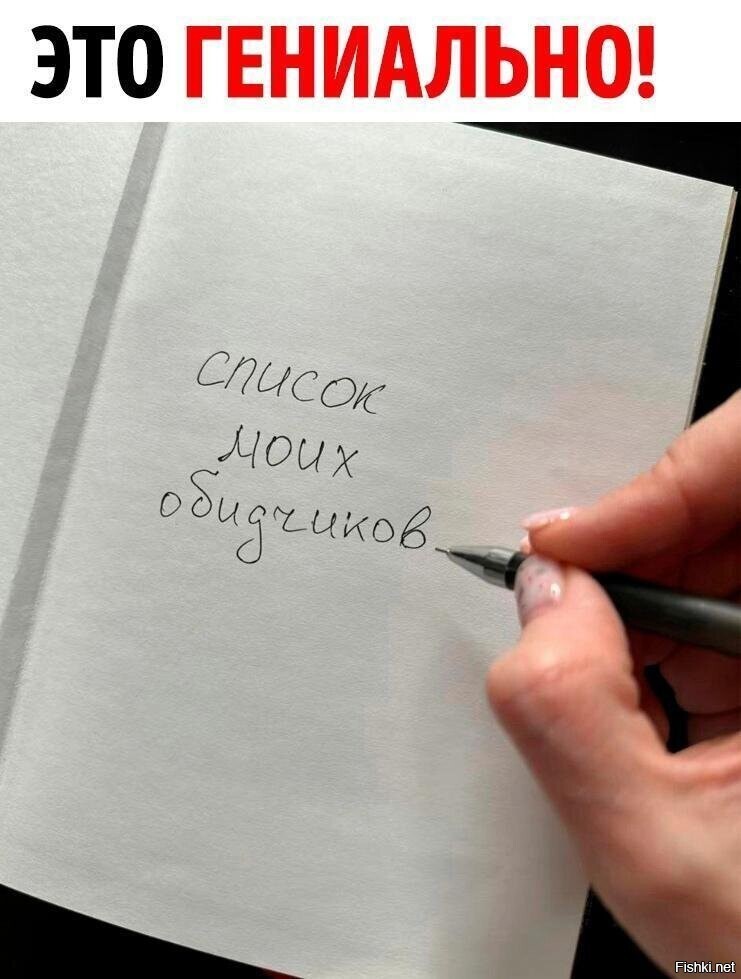 ЭТО ГЕНИАЛЬНО!
список
моих
обидчиков
Fishki.net